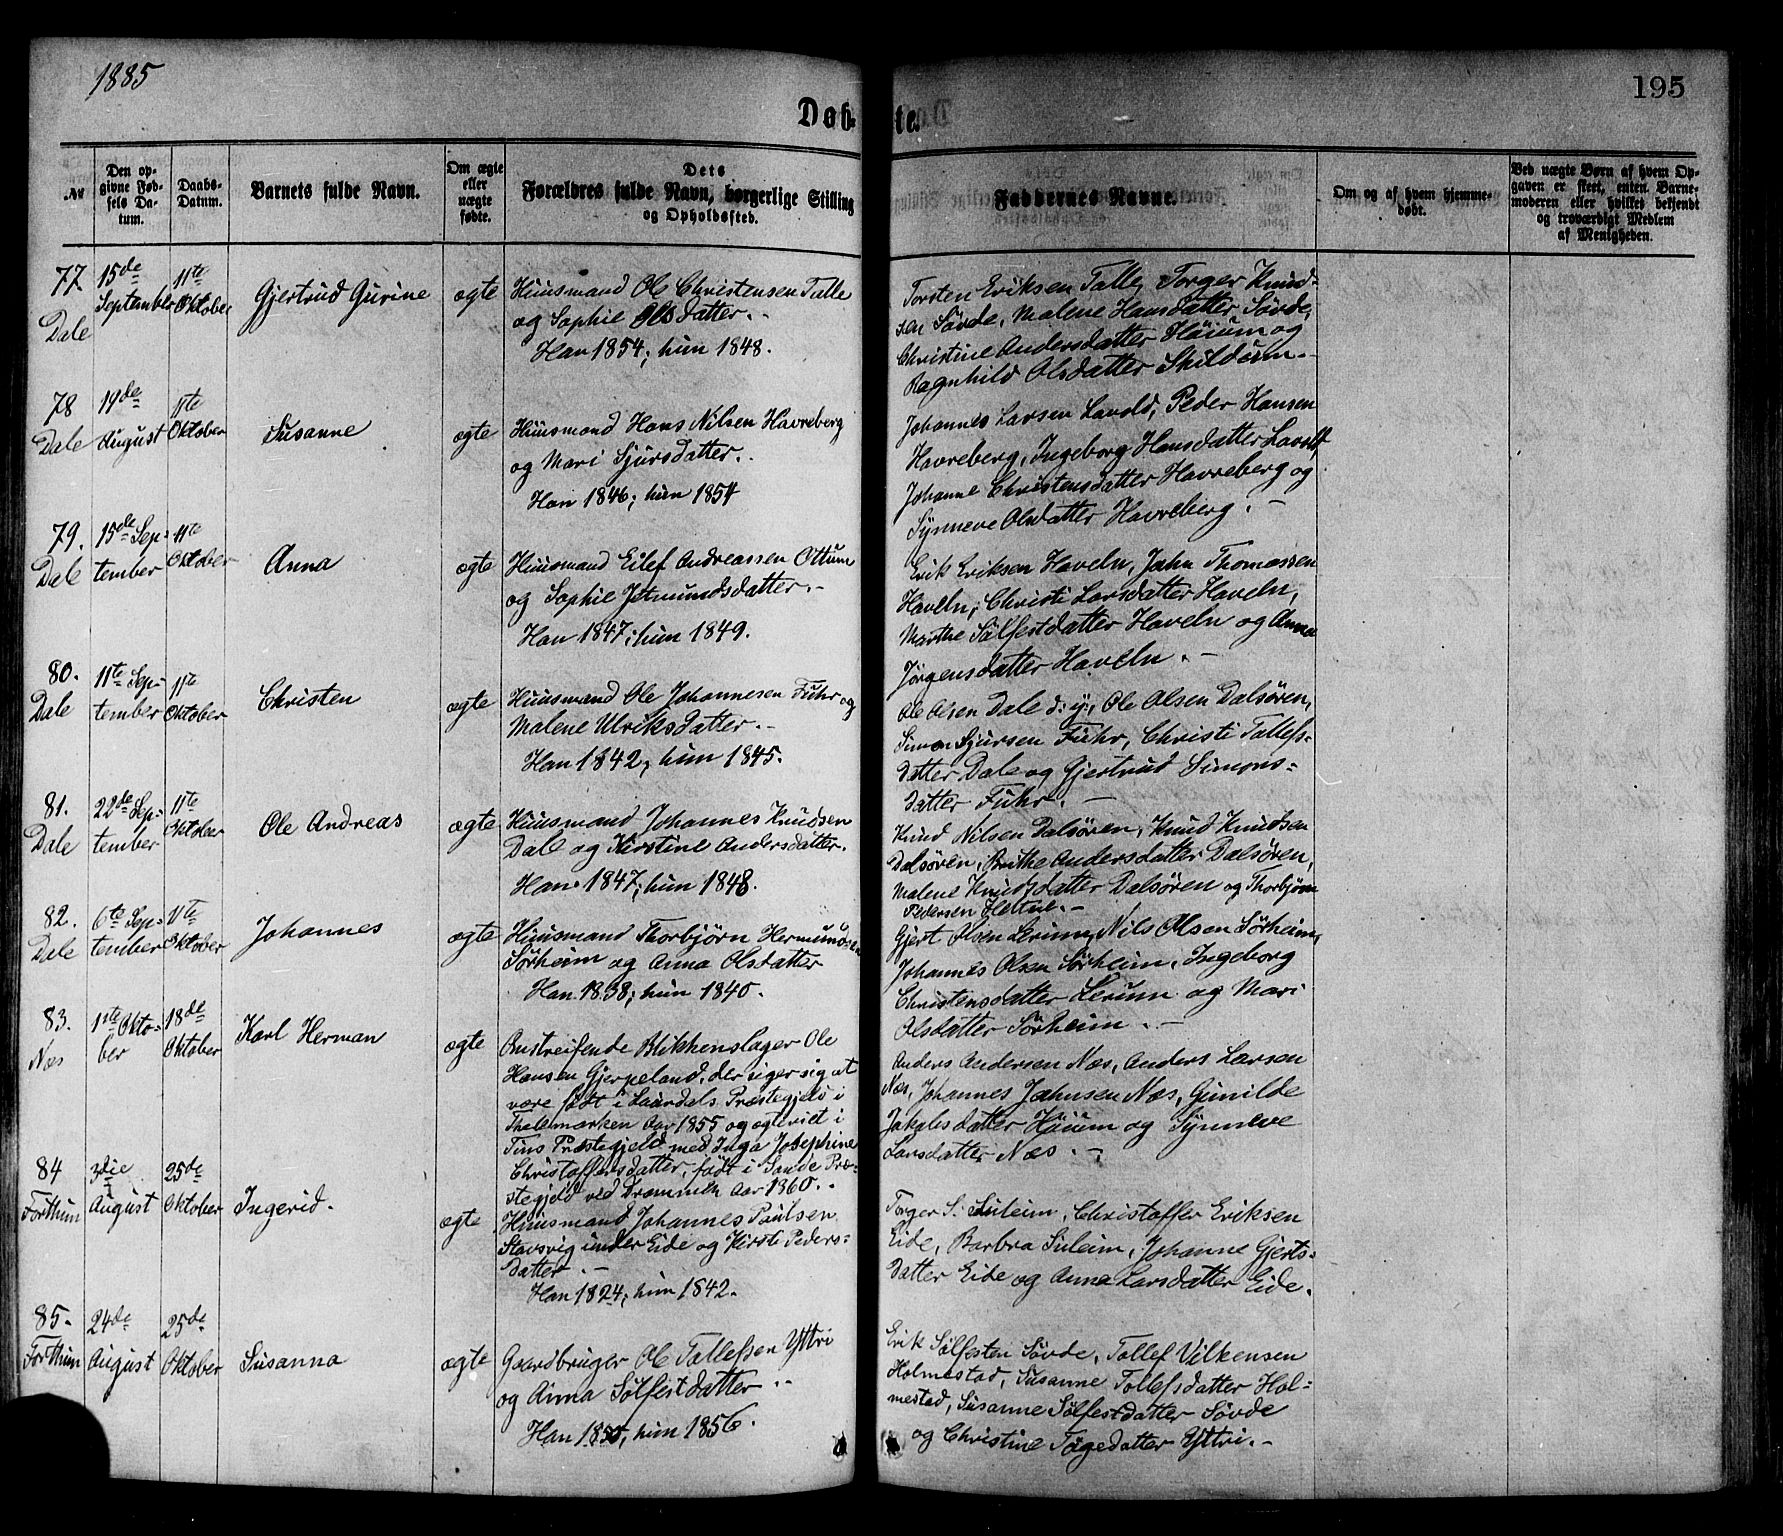 1885
195
Døbte.
No
Den opgivne Fødsels Datum.
Daabs-Datum.
Barnets fulde Navn.
Om ægte eller uægte fødte.
Dets Forældres fulde Navn, borgerlige Stilling og Opholdssted.
Faddernes Navne.
Om og af hvem hjemmedøbt.
Ved uægte Børn af hvem Opgaven er skeet, enten Barnemoderen eller hvilket bekjendt og troværdigt Medlem af Menigheden.
77. Dale
15de September
11te Oktober
Gjertrud Gurine
ægte
Huusmand Ole Christensen Talle
og Sophie Olsdatter. -
Han 1854; hun 1848.
Torsten Eriksen Talle, Torger Knud-
sen Søvde, Malene Hansdatter Søvde,
Christine Andersdatter Høium og
Ragnhild Olsdatter Skildum. -
78 Dale
19de August
11te Oktober
Susanne
ægte
Huusmand Hans Nilsen Havreberg
og Mari Sjursdatter.
Han 1846; hun 1854
Johannes Larsen Lavold, Peder Hansen
Havreberg, Ingeborg Hansdatter Lavold,
Johanne Christensdatter Havreberg og
Synneve Olsdatter Havreberg. -
79. Dale
15de September
11te Oktober
Anna
ægte
Huusmand Eilef Andreassen Ottum
og Sophie Jetmundsdatter. -
Han 1847; hun 1849.
Erik Eriksen Haveln, John Thomassen
Haveln, Christi Larsdatter Haveln,
Marthe Sølfestdatter Haveln og Anna
Jørgensdatter Haveln. -
80. Dale
11te September
11te Oktober
Christen
ægte
Huusmand Ole Johannesen Fuhr og
Malene Ulriksdatter. -
Han 1842, hun 1845.
Ole Olsen Dale d. y., Ole Olsen Dalsøren,
Simon Sjursen Fuhr, Christi Tollefs-
datter Dale og Gjertrud Simons-
datter Fuhr. -
81. Dale
22de September
11te Oktober
Ole Andreas
ægte
Huusmand Johannes Knudsen
Dale og Kirstine Andersdatter.
Han 1847; hun 1848.
Knud Nilsen Dalsøren, Knud Knudsen
Dalsøren, Brithe Andersdatter Dalsøren,
Malene Knudsdatter Dalsøren og Thorbjørn
Pedersen Hettne. -
82. Dale
6te September
11te Oktober
Johannes
ægte
Huusmand Thorbjørn Hermundsen
Sørheim og Anna Olsdatter
Han 1838; hun 1840.
Gjert Olsen Lerum, Nils Olsen Sørheim,
Johannes Olsen Sørheim, Ingeborg
Christensdatter Lerum og Mari
Olsdatter Sørheim. -
83. Næs
1ste Oktober
18de Oktober
Karl Herman
ægte
Omstreifende Blikkenslager Ole
Hansen Gjerpeland, der siger sig at
være født i Laurdals Præstegjeld i
Thelemarken Aar 1855 og ægteviet i
Tins Præstegjeld med Inga Josephine
Christoffersdatter, født i Sande Præ-
stegjeld ved Drammen Aar 1860. -
Anders Andersen Næs, Anders Larsen
Næs, Johannes Johnsen Næs, Gunilde
Jakobsdatter Høium og Synneve
Larsdatter Næs. -
84 Forthun
3die August
25de Oktober
Ingerid.
ægte
Huusmand Johannes Paulsen
Stavsvig under Eide og Kirsti Peders-
datter. -
Han 1824; hun 1842.
Torger S. Suleim, Christoffer Eriksen
Eide, Barbra Suleim, Johanne Gjerts-
datter Eide og Anna Larsdatter Eide.
85. Forthun
24de August
25de Oktober
Susanna
ægte
Gaardbruger Ole Tollefsen Yttri
og Anna Sølfestdatter -
Han 1850, hun 1856.
Erik Sølfesten Søvde, Tollef Vilkensen
Holmestad, Susanne Tollefsdatter Hol-
mestad, Susanne Sølfestdatter Søvde
og Christine Tøgedatter Yttri. -